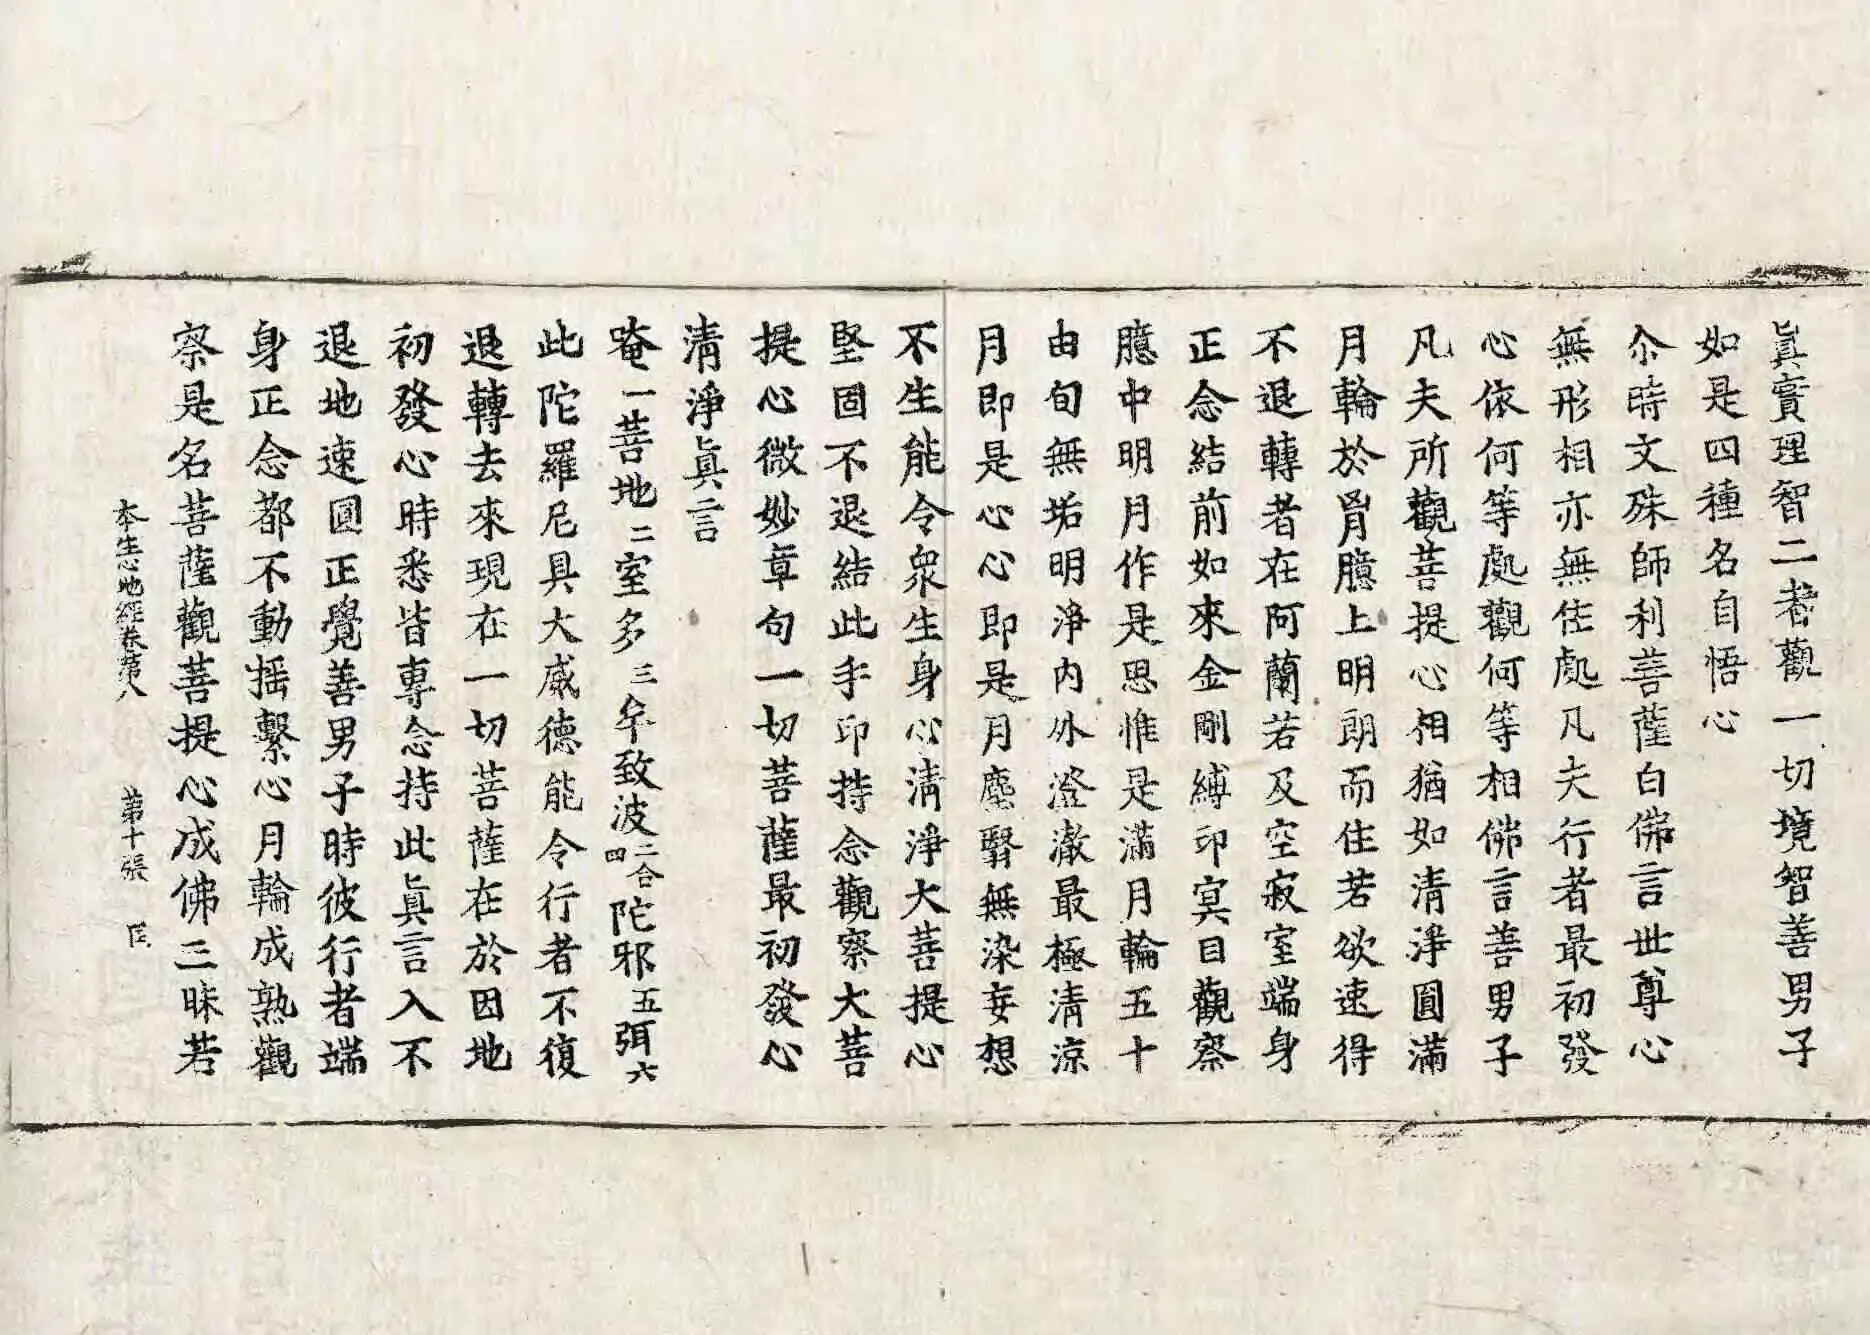 眞實理智二者觀一切境智善男子
如是四種名自悟心
尒時文殊師利菩薩白佛言世尊心
無形相亦無住處凡夫行者最初發
心依何等處觀何等相佛言善男子
凡夫所觀菩提心相猶如清淨圓滿
月輪於胷臆上明朗而住若欲速得
不退轉者在阿蘭若及空寂室端身
正念結前如來金剛縛印冥目觀察
臆中明月作是思惟是滿月輪五十
由旬無垢明淨內外澄澈最極清涼
月即是心心即是月塵翳無染妄想
不生能令衆生身心清淨大菩提心
堅固不退結此手印持念觀察大菩
提心微妙章句一切菩薩最初發心
清淨眞言
唵一菩地二室多三牟致波二合四陀邪五弭六
此陀羅尼具大威德能令行者不復
退轉去來現在一切菩薩在於因地
初發心時悉皆專念持此眞言入不
退地速圓正覺善男子時彼行者端
身正念都不動搖繫心月輪成熟觀
察是名菩薩觀菩提心成佛三昧若
本生心地經卷第八 第十張